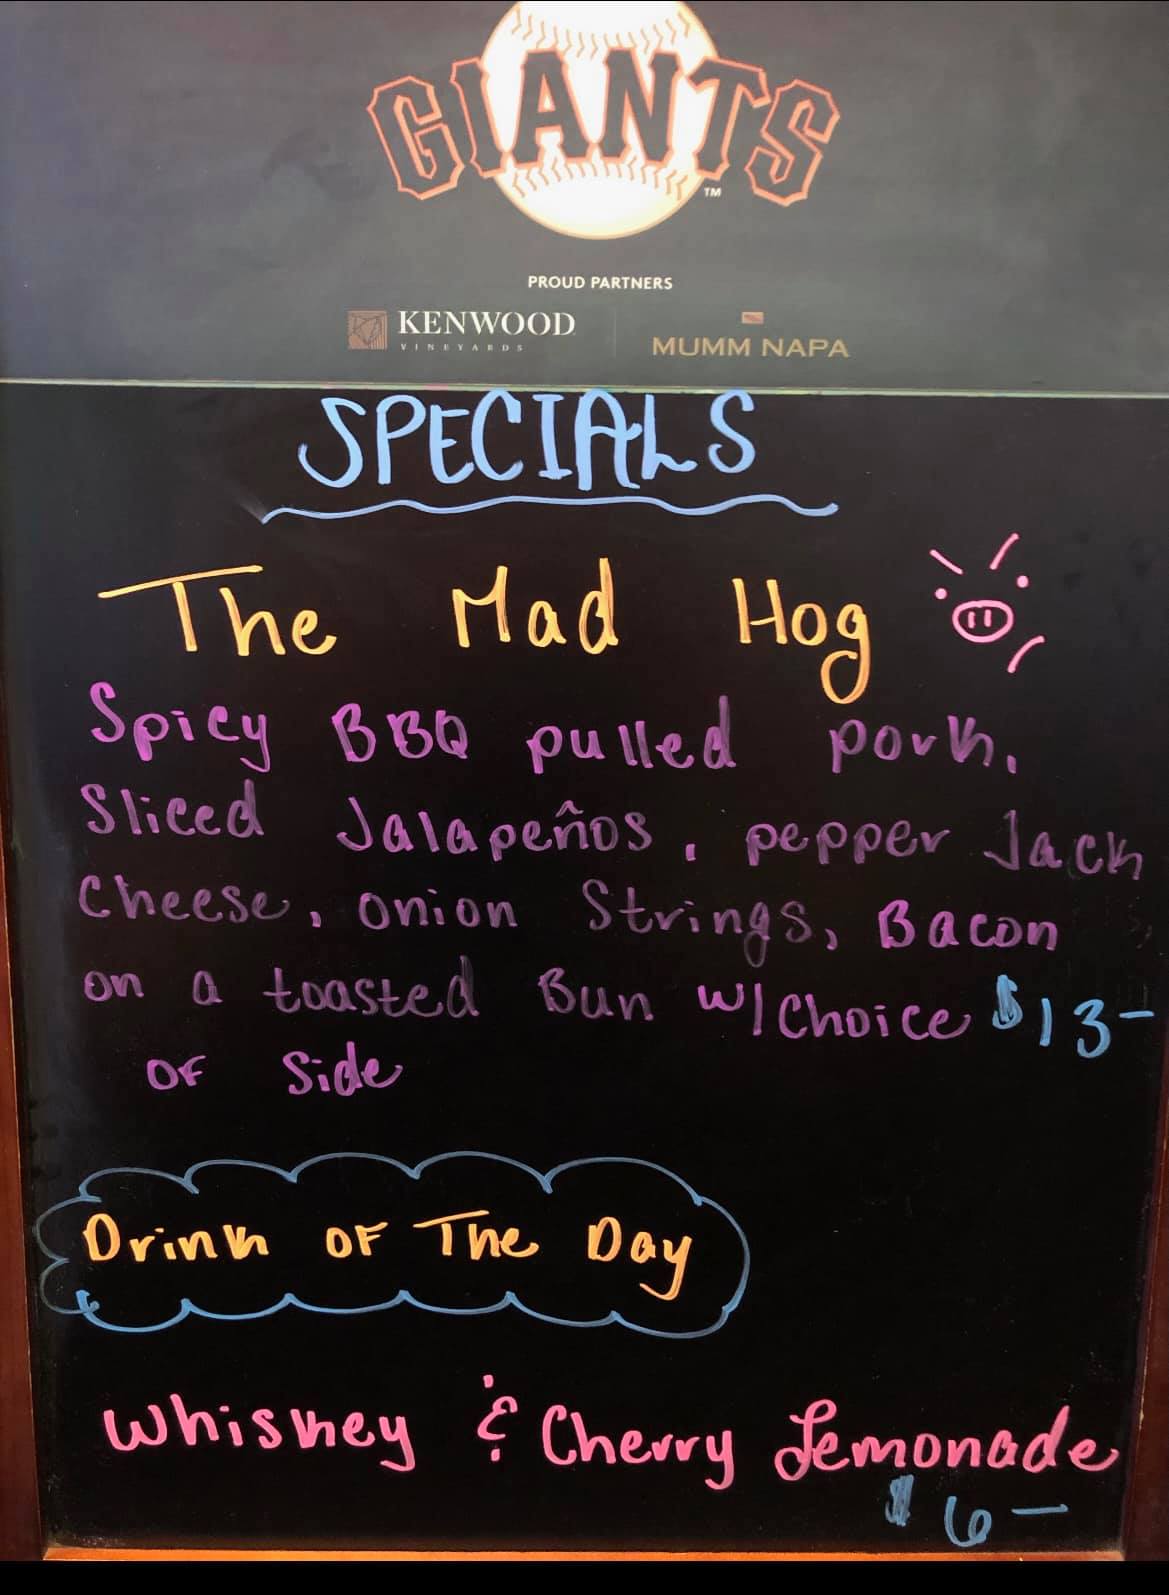 GIANTS
TM
PROUD PARTNERS
KENWOOD
VINEYARDS
MUMM NAPA
SPECIALS
The Mad Hog
Spicy BBQ pulled pork,
Sliced Jalapeños, pepper Jack
Cheese, onion Strings, Bacon
on a toasted Bun w/ Choice $13-
of Side
Drink of The Day
Whiskey & Cherry Lemonade
$6-